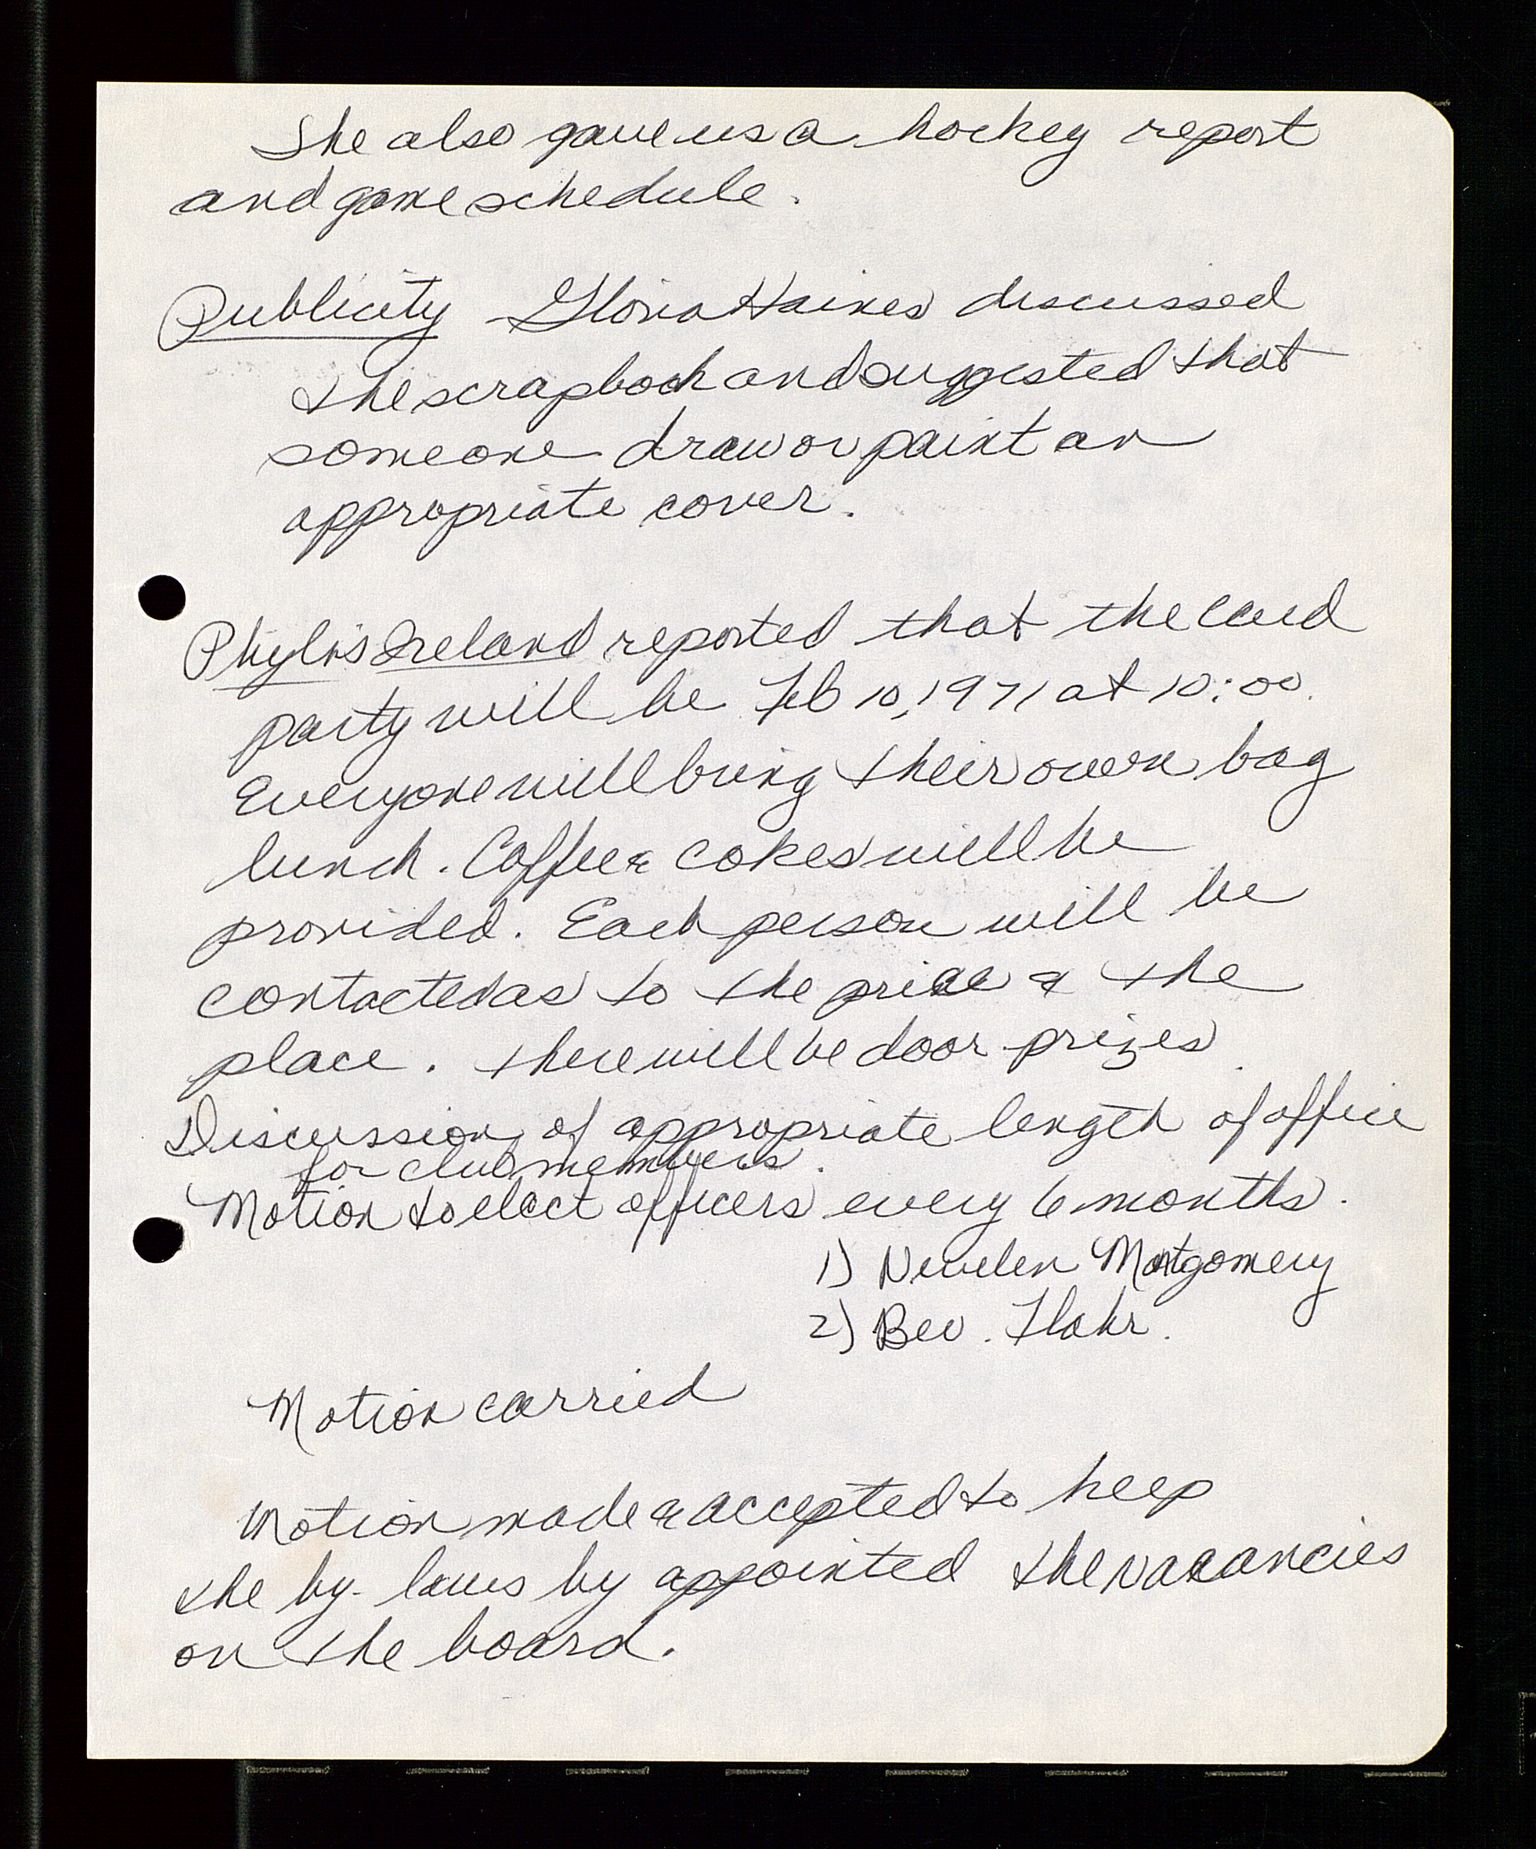 She also gave us a hockey report
and game schedule.
Publicity Gloria Haines discussed
the scrapbook and suggested that
someone draw or paint an
appropriate cover.
Phylis Ireland reported that the card
party will be Feb 10, 1971 at 10:00.
Everyone will bring their own bag
lunch. Coffee & cokes will be
provided. Each person will be
contacted as to the price & the
place. there will be door prizes.
Discussion of appropriate length of office
for club members.
Motion to elect officers every 6 months.
1) Nevelen Montgomery
2) Bev. Flohr.
Motion carried
Motion made & accepted to keep
the by-laws by appointed the vacancies
on the board.